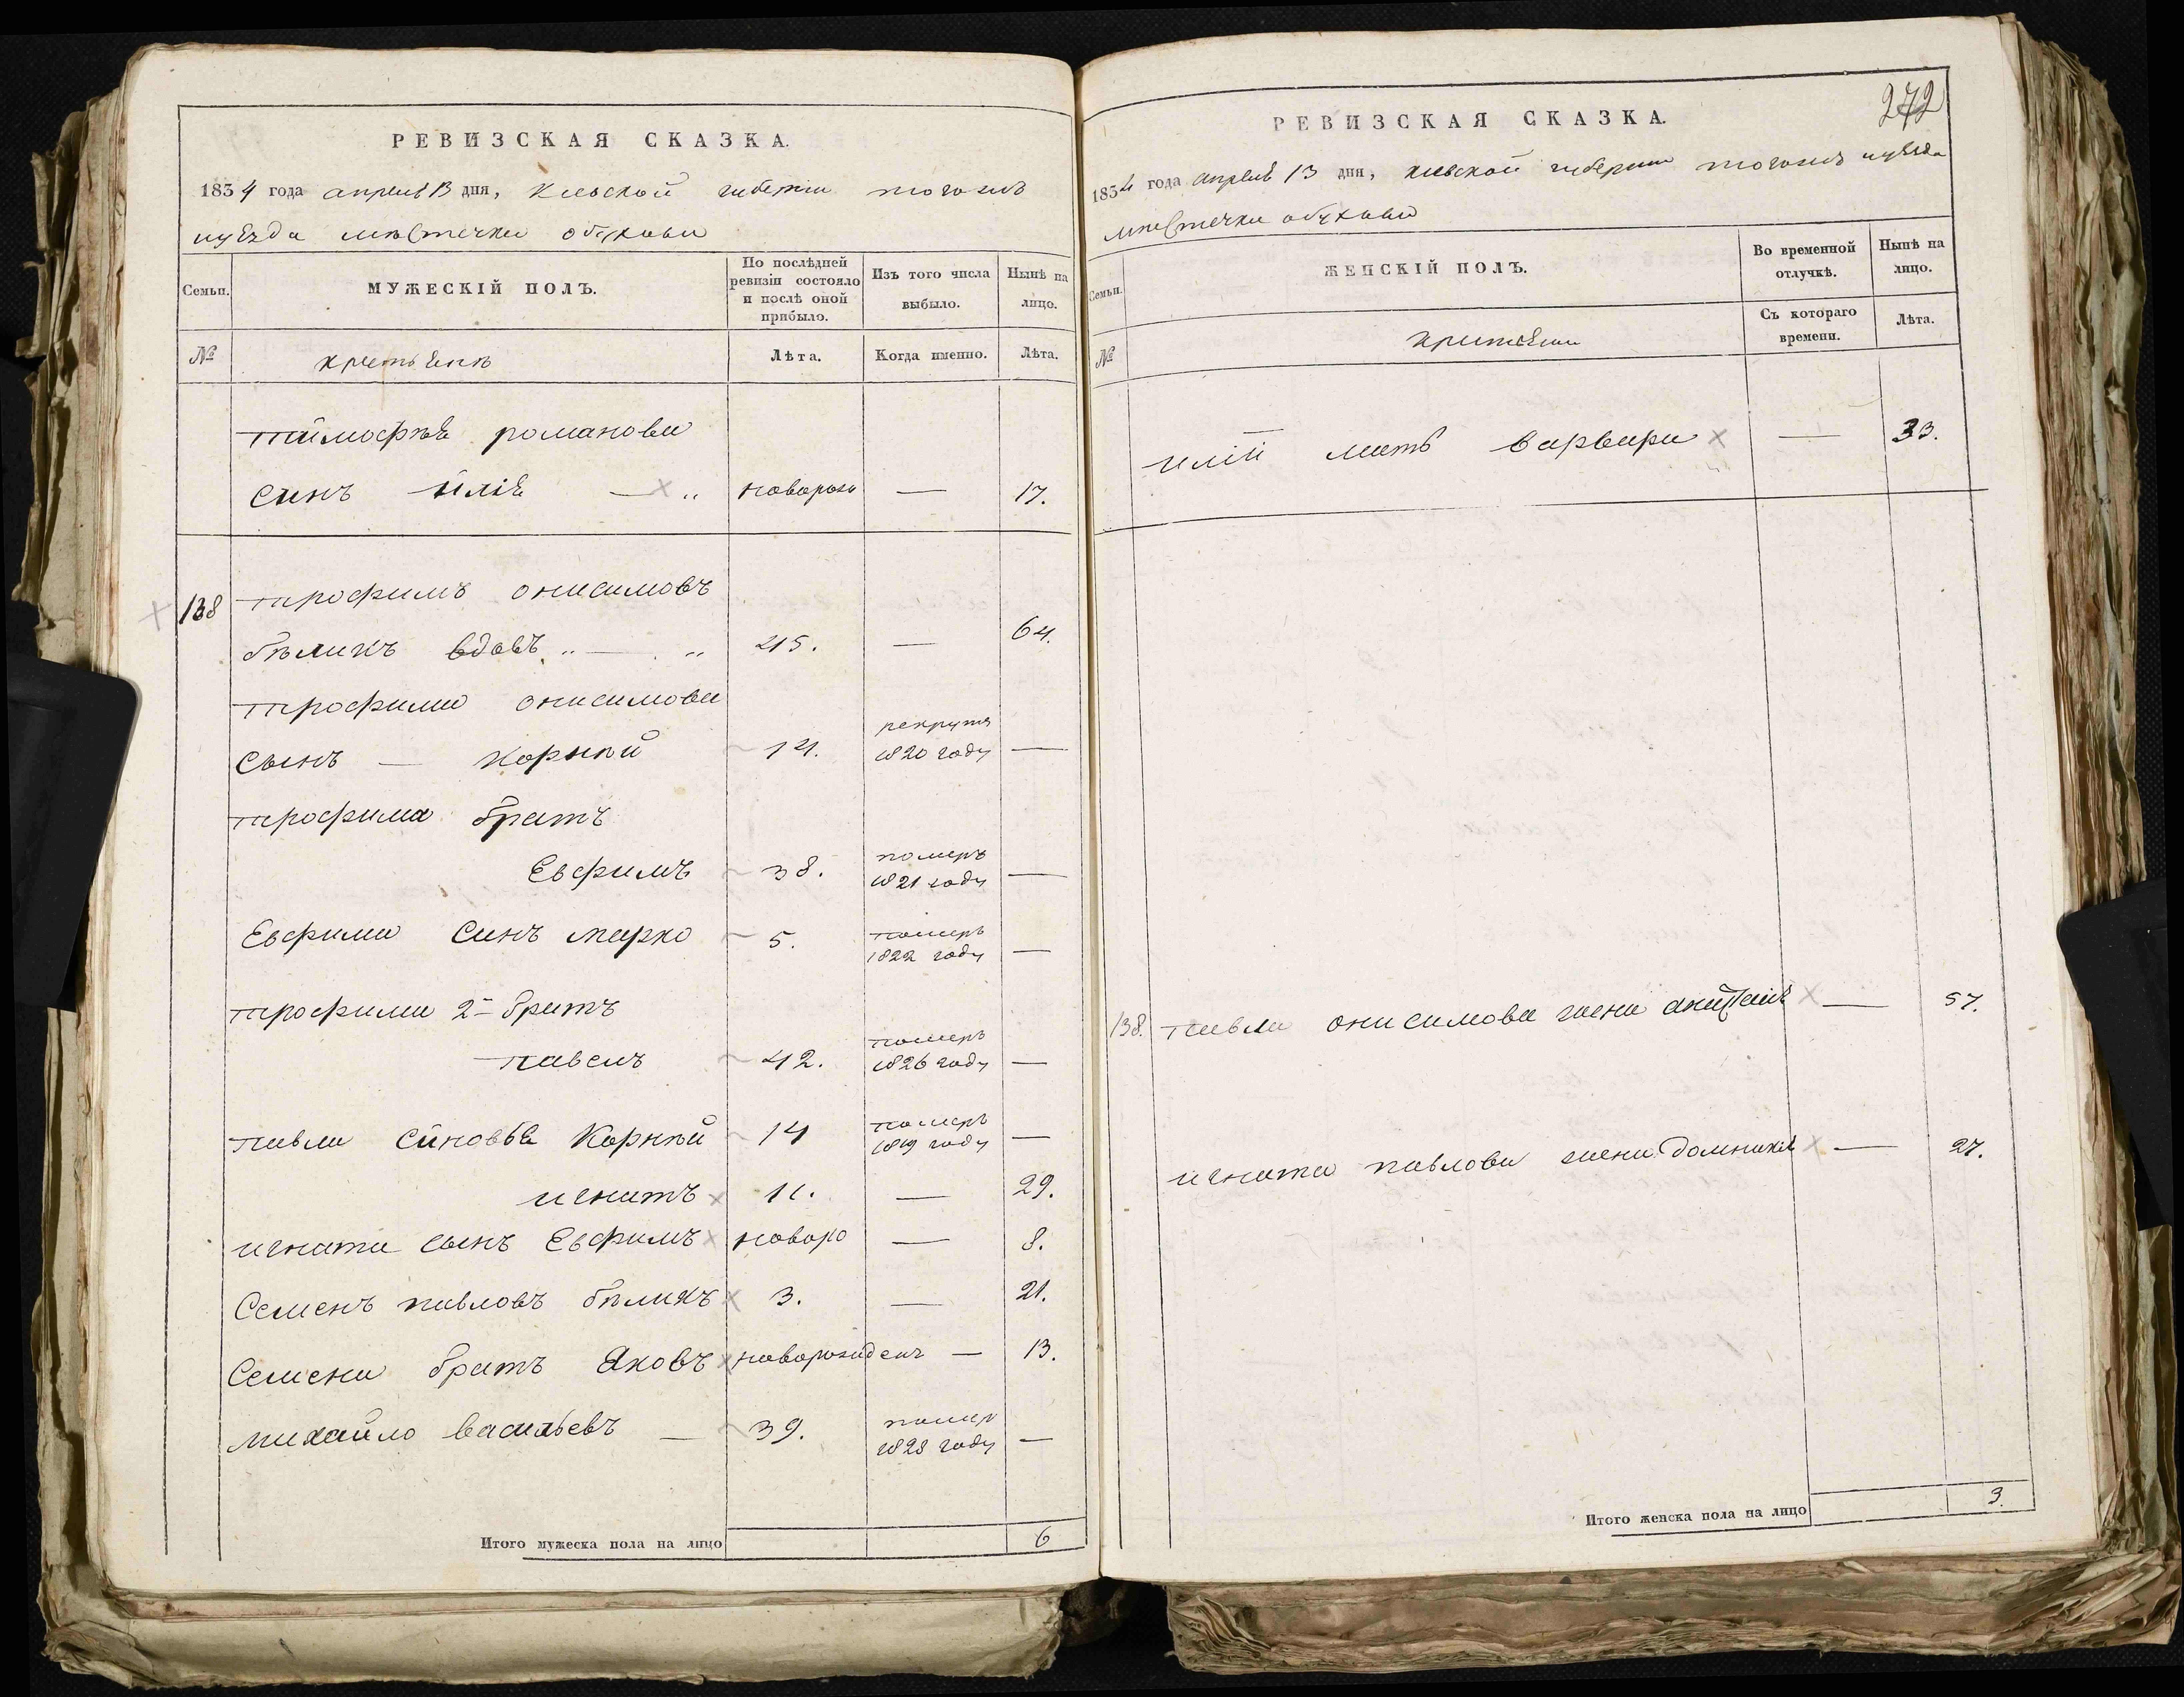 РЕВИЗСКАЯ СКАЗКА.
1834 года апреля 13 дня, Киевской губернии тогожъ
уезда местечка обухова
Семьи.
МУЖЕСКІЙ ПОЛЪ.
По послѣдней ревизіи состояло и послѣ оной прибыло.
Изъ того числа выбыло.
Нынѣ на лицо.
№
Лѣта.
Когда именно.
Лѣта.
тимофѣя романова
синъ илія — " новорож — 17.
138 трофимъ онисимовъ
бѣликъ вдовъ " — " 45. — 64.
трофима онисимова
рекрутъ
сынъ — Корнѣй 14. 1820 году —
трофима братъ
померъ
Евфимъ 38. 1821 году —
Евфима синъ марко 5. померъ —
1822 году
трофима 2й братъ
померъ
павелъ 42. 1826 году —
павла синовья Корнѣй 14 померъ —
1819 году
игнатъ 11. — 29.
игната сынъ Евфимъ новоро — 8.
Семенъ павловъ бѣликъ 3. — 21.
Семена братъ Яковъ новорожденъ — 13.
михайло васильевъ — 39. помер —
1828 году
Итого мужеска пола на лицо 6
272
РЕВИЗСКАЯ СКАЗКА.
1834 года апреля 13 дня, киевской губернии тогожъ уезда
местечка обухова
Семьи.
ЖЕНСКІЙ ПОЛЪ.
Во временной отлучкѣ.
Нынѣ на лицо.
№
Съ котораго времени.
Лѣта.
иліи мать варвара — 33.
138. павла онисимова жена — 57.
игната павлова жена домникія — 27.
Итого женска пола на лицо 3.